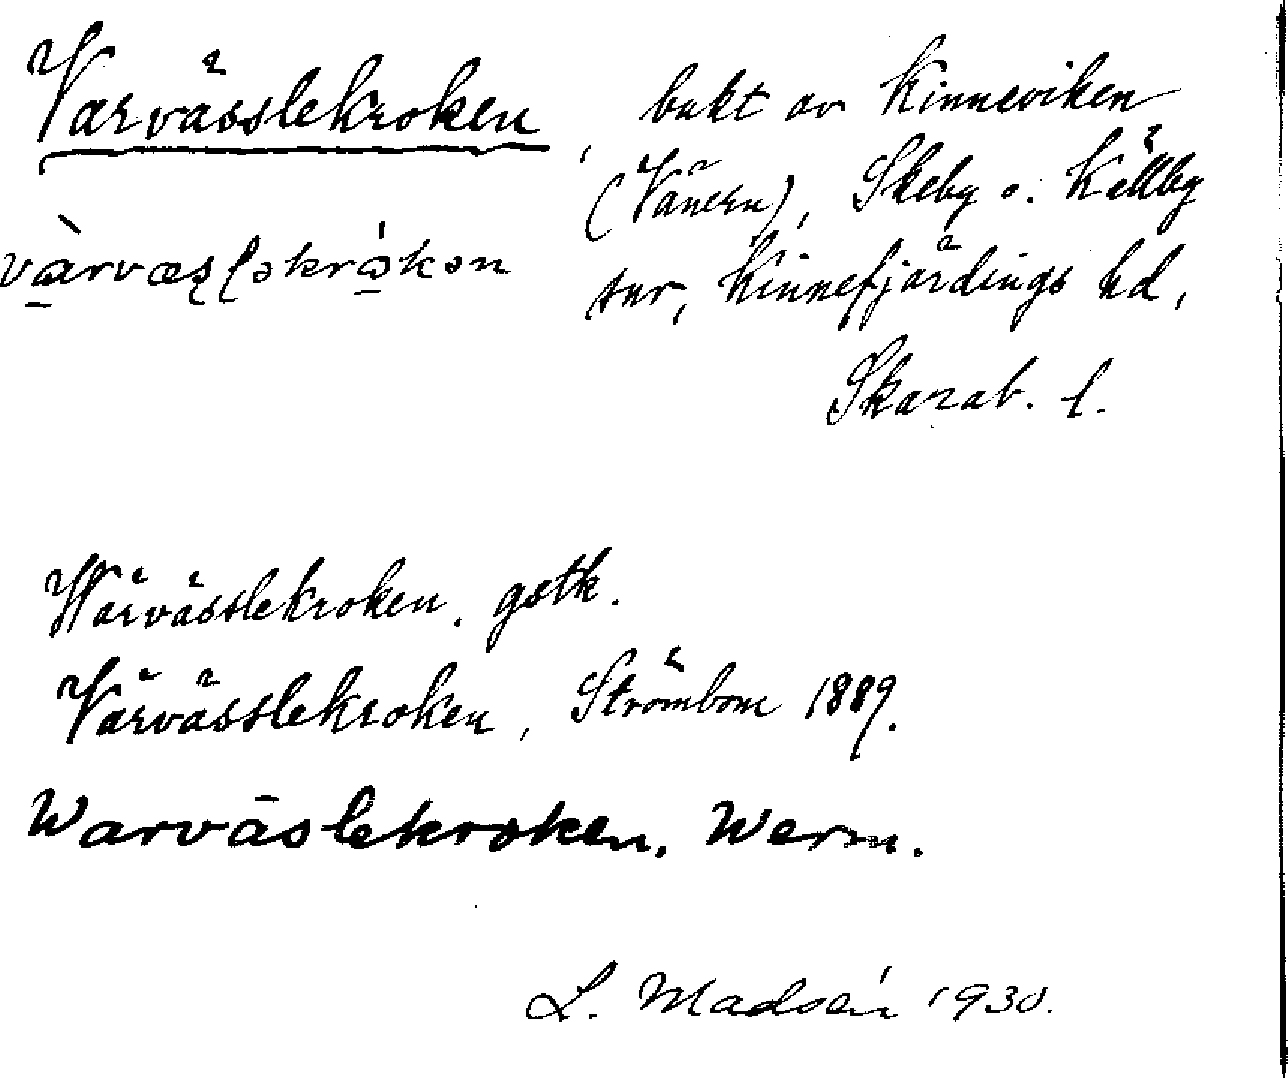 Varvässlekroken, bukt av Kinneviken
(Vänern), Skeby o. Källby
snr, Kinnefjärdings hd,
Skarab. l.
Wärvässlekroken. gstk.
Värvässlekroken, Strömbom 1889.
Warväslekroken. Werm.
L. Madsén 1930.